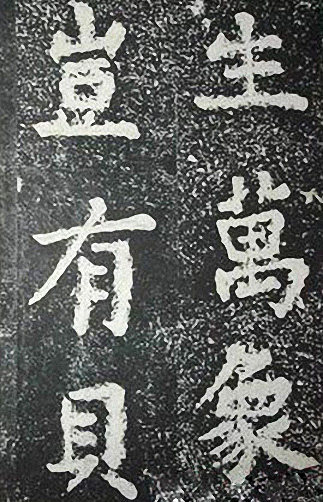 生萬象
豈有貝